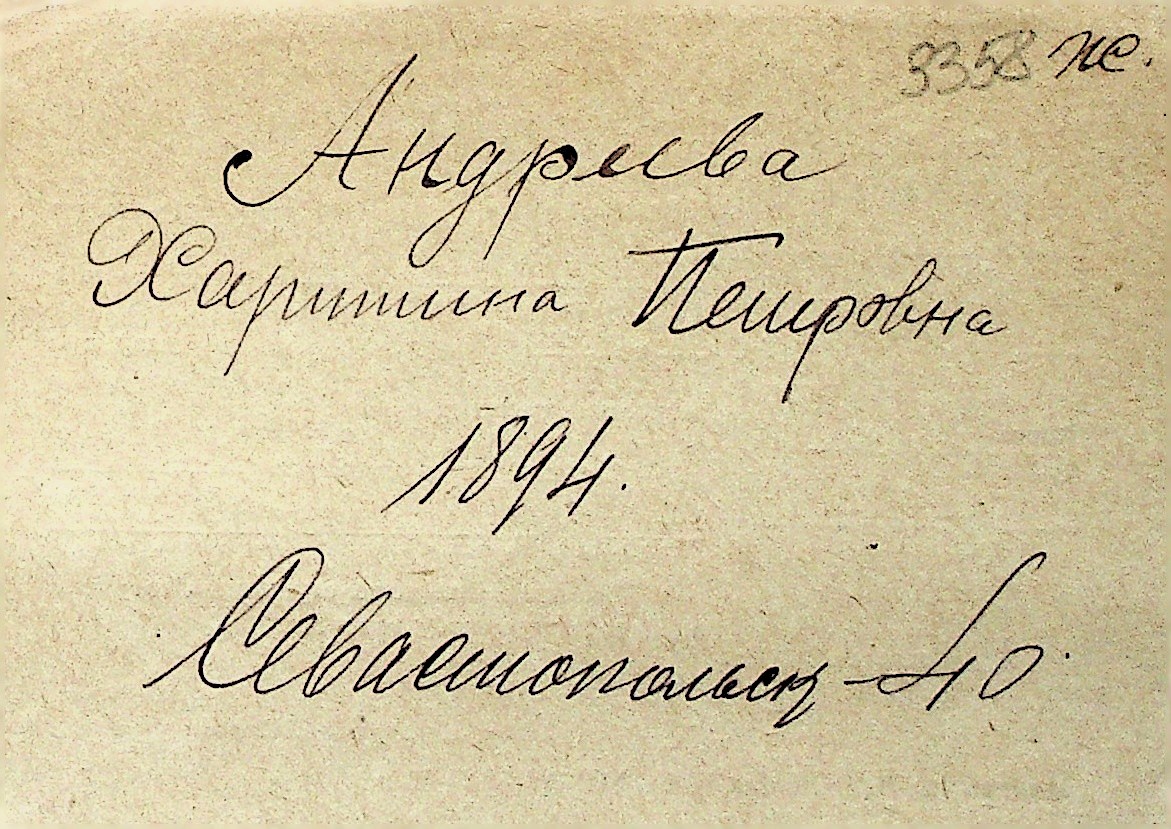 3358 ж.
Андреева
Харитина Петровна
1894.
Севастопольск - 40.